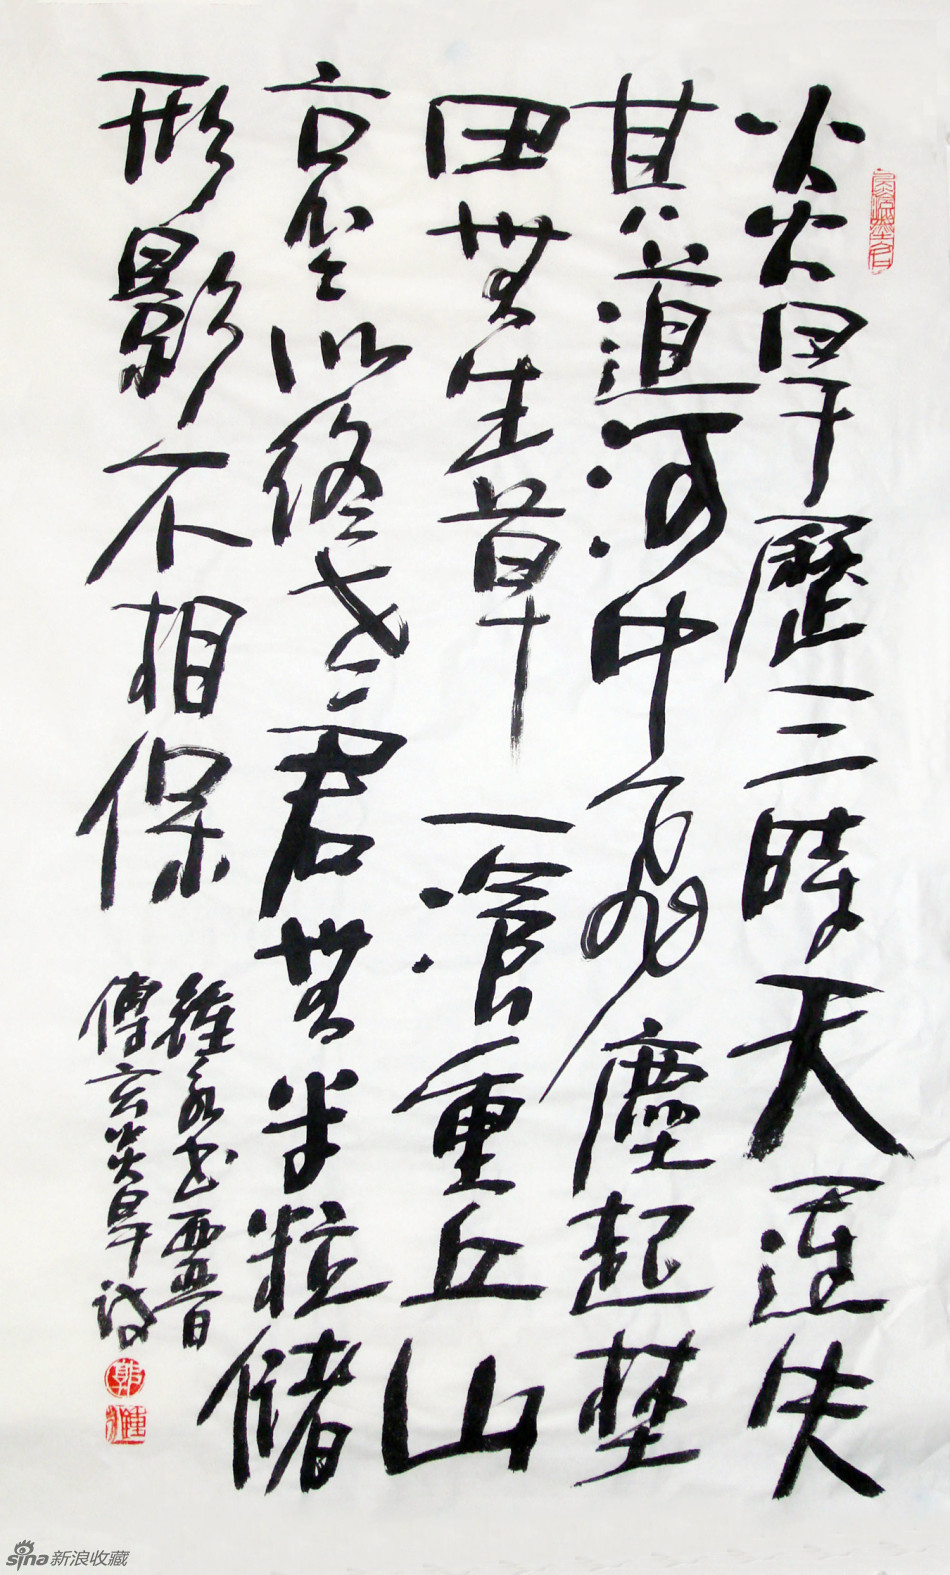 炎旱歷三時天運失
其道河中飛塵起埜
田無生草一湌重丘山
哀之以終老君無半粒儲
形影不相保
永書西晉
傅玄炎旱詩
sina新浪收藏